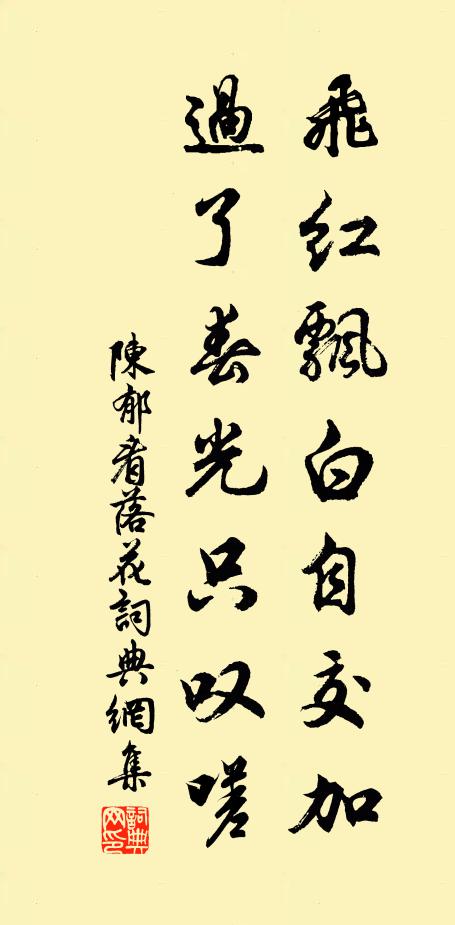 飛紅飄白自交加
過了春光只叹嗟
陳郁看落花詞典網集
詞典网印